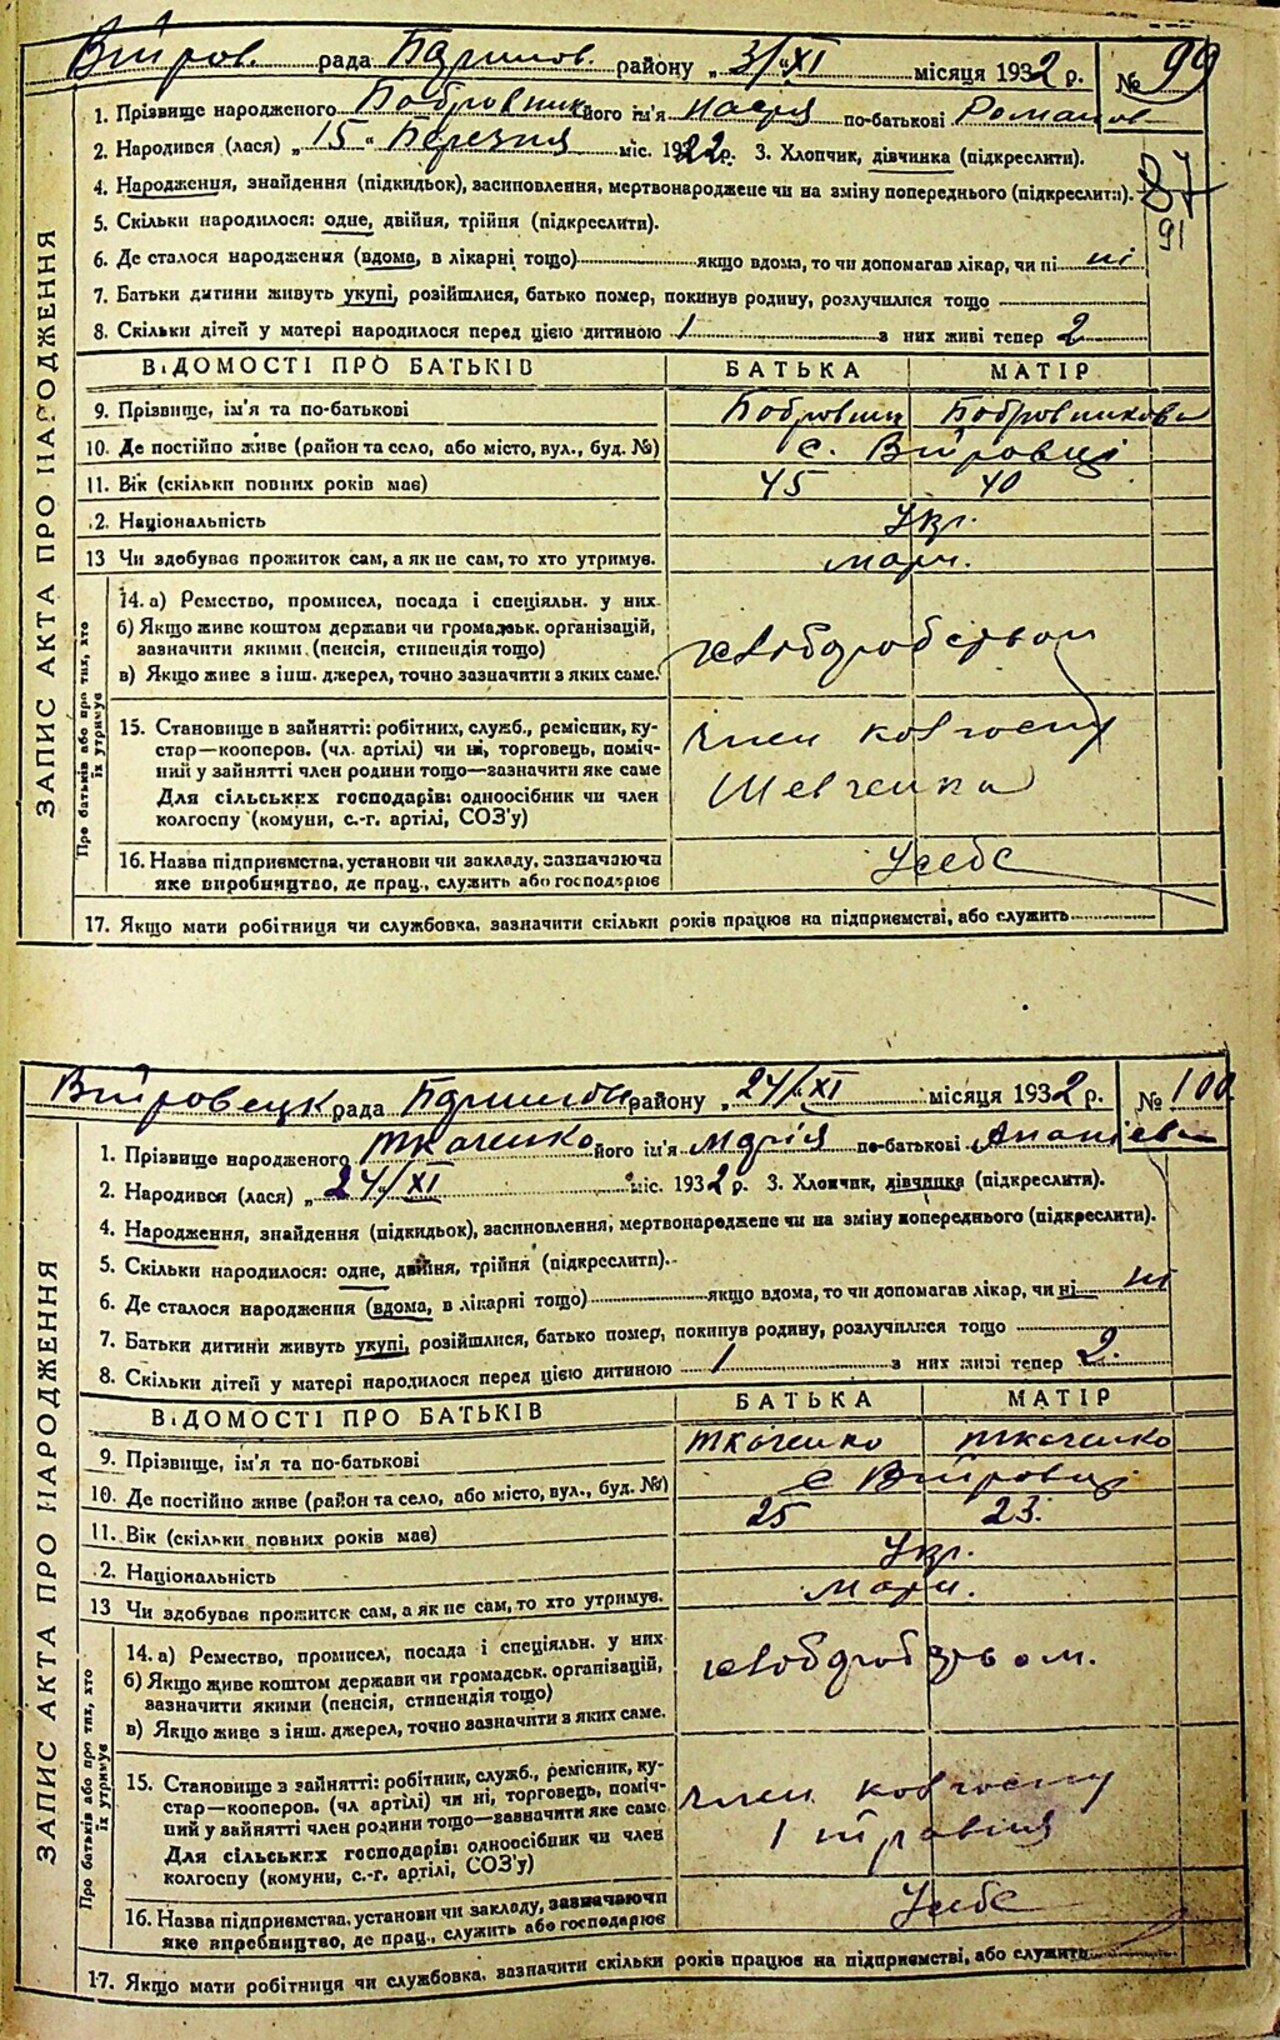 рада району „3/„XI місяця 1932 р. № 99
1. Прізвище народженого його ім'я по-батькові Романов
2. Народився (лася) „15“ Березня міс. 1922 р. 3. Хлопчик, дівчинка (підкреслити).
4. Народження, знайдення (підкидьок), засиновлення, мертвонароджене чи на зміну попереднього (підкреслити).
87
91
5. Скільки народилося: одне, двійня, трійня (підкреслити).
6. Де сталося народження (вдома, в лікарні тощо) якщо вдома, то чи допомагав лікар, чи ні ні
7. Батьки дитини живуть укупі, розійшлися, батько помер, покинув родину, розлучилися тощо
8. Скільки дітей у матері народилося перед цією дитиною 1 з них живі тепер 2
ВІДОМОСТІ ПРО БАТЬКІВ БАТЬКА МАТІР
9. Прізвище, ім'я та по-батькові Бобровник Бобровникова
10. Де постійно живе (район та село, або місто, вул., буд. №) с. Війтовці
11. Вік (скільки повних років має) 45 40
12. Національність Укр.
13 Чи здобував прожиток сам, а як не сам, то хто утримує.
14. а) Ремество, промисел, посада і спеціяльн. у них
б) Якщо живе коштом держави чи громадськ. організацій,
зазначити якими (пенсія, стипендія тощо)
в) Якщо живе з інш. джерел, точно зазначити з яких саме.
хліборобством
15. Становище в зайнятті: робітник, служб., ремісник, ку-
стар—кооперов. (чл. артілі) чи ні, торговець, поміч-
ний у зайнятті член родини тощо—зазначити яке саме
Для сільських господарів: одноосібник чи член
колгоспу (комуни, с.-г. артілі, СОЗ'у)
член колгоспу
Шевченка
16. Назва підприємства, установи чи закладу, зазначаючи
яке виробництво, де прац., служить або господарює
У себе
17. Якщо мати робітниця чи службовка, зазначити скільки років працює на підприємстві, або служить
ЗАПИС АКТА ПРО НАРОДЖЕННЯ
Про батьків або про тих, хто
їх утримує
рада району „24/„XI місяця 1932 р. № 100
1. Прізвище народженого Ткаченко його ім'я Марія по-батькові Ананієвн
2. Народився (лася) „24/XI міс. 1932 р. 3. Хлопчик, дівчинка (підкреслити).
4. Народження, знайдення (підкидьок), засиновлення, мертвонароджене чи на зміну попереднього (підкреслити).
5. Скільки народилося: одне, двійня, трійня (підкреслити).
6. Де сталося народження (вдома, в лікарні тощо) якщо вдома, то чи допомагав лікар, чи ні ні
7. Батьки дитини живуть укупі, розійшлися, батько помер, покинув родину, розлучилися тощо
8. Скільки дітей у матері народилося перед цією дитиною 1 з них живі тепер 2.
ВІДОМОСТІ ПРО БАТЬКІВ БАТЬКА МАТІР
9. Прізвище, ім'я та по-батькові Ткаченко Ткаченко
10. Де постійно живе (район та село, або місто, вул., буд. №) с Війтовці
11. Вік (скільки повних років має) 25 23.
12. Національність Укр.
13 Чи здобував прожиток сам, а як не сам, то хто утримує.
14. а) Ремество, промисел, посада і спеціяльн. у них
б) Якщо живе коштом держави чи громадськ. організацій,
зазначити якими (пенсія, стипендія тощо)
в) Якщо живе з інш. джерел, точно зазначити з яких саме.
хліборобством.
15. Становище в зайнятті: робітник, служб., ремісник, ку-
стар—кооперов. (чл артілі) чи ні, торговець, поміч-
ний у зайнятті член родини тощо—зазначити яке саме
Для сільських господарів: одноосібник чи член
колгоспу (комуни, с.-г. артілі, СОЗ'у)
член колгоспу
1 травня
16. Назва підприємства, установи чи закладу, зазначаючи
яке виробництво, де прац., служить або господарює
У себе
17. Якщо мати робітниця чи службовка, зазначити скільки років працює на підприємстві, або служить
ЗАПИС АКТА ПРО НАРОДЖЕННЯ
Про батьків або про тих, хто
їх утримує